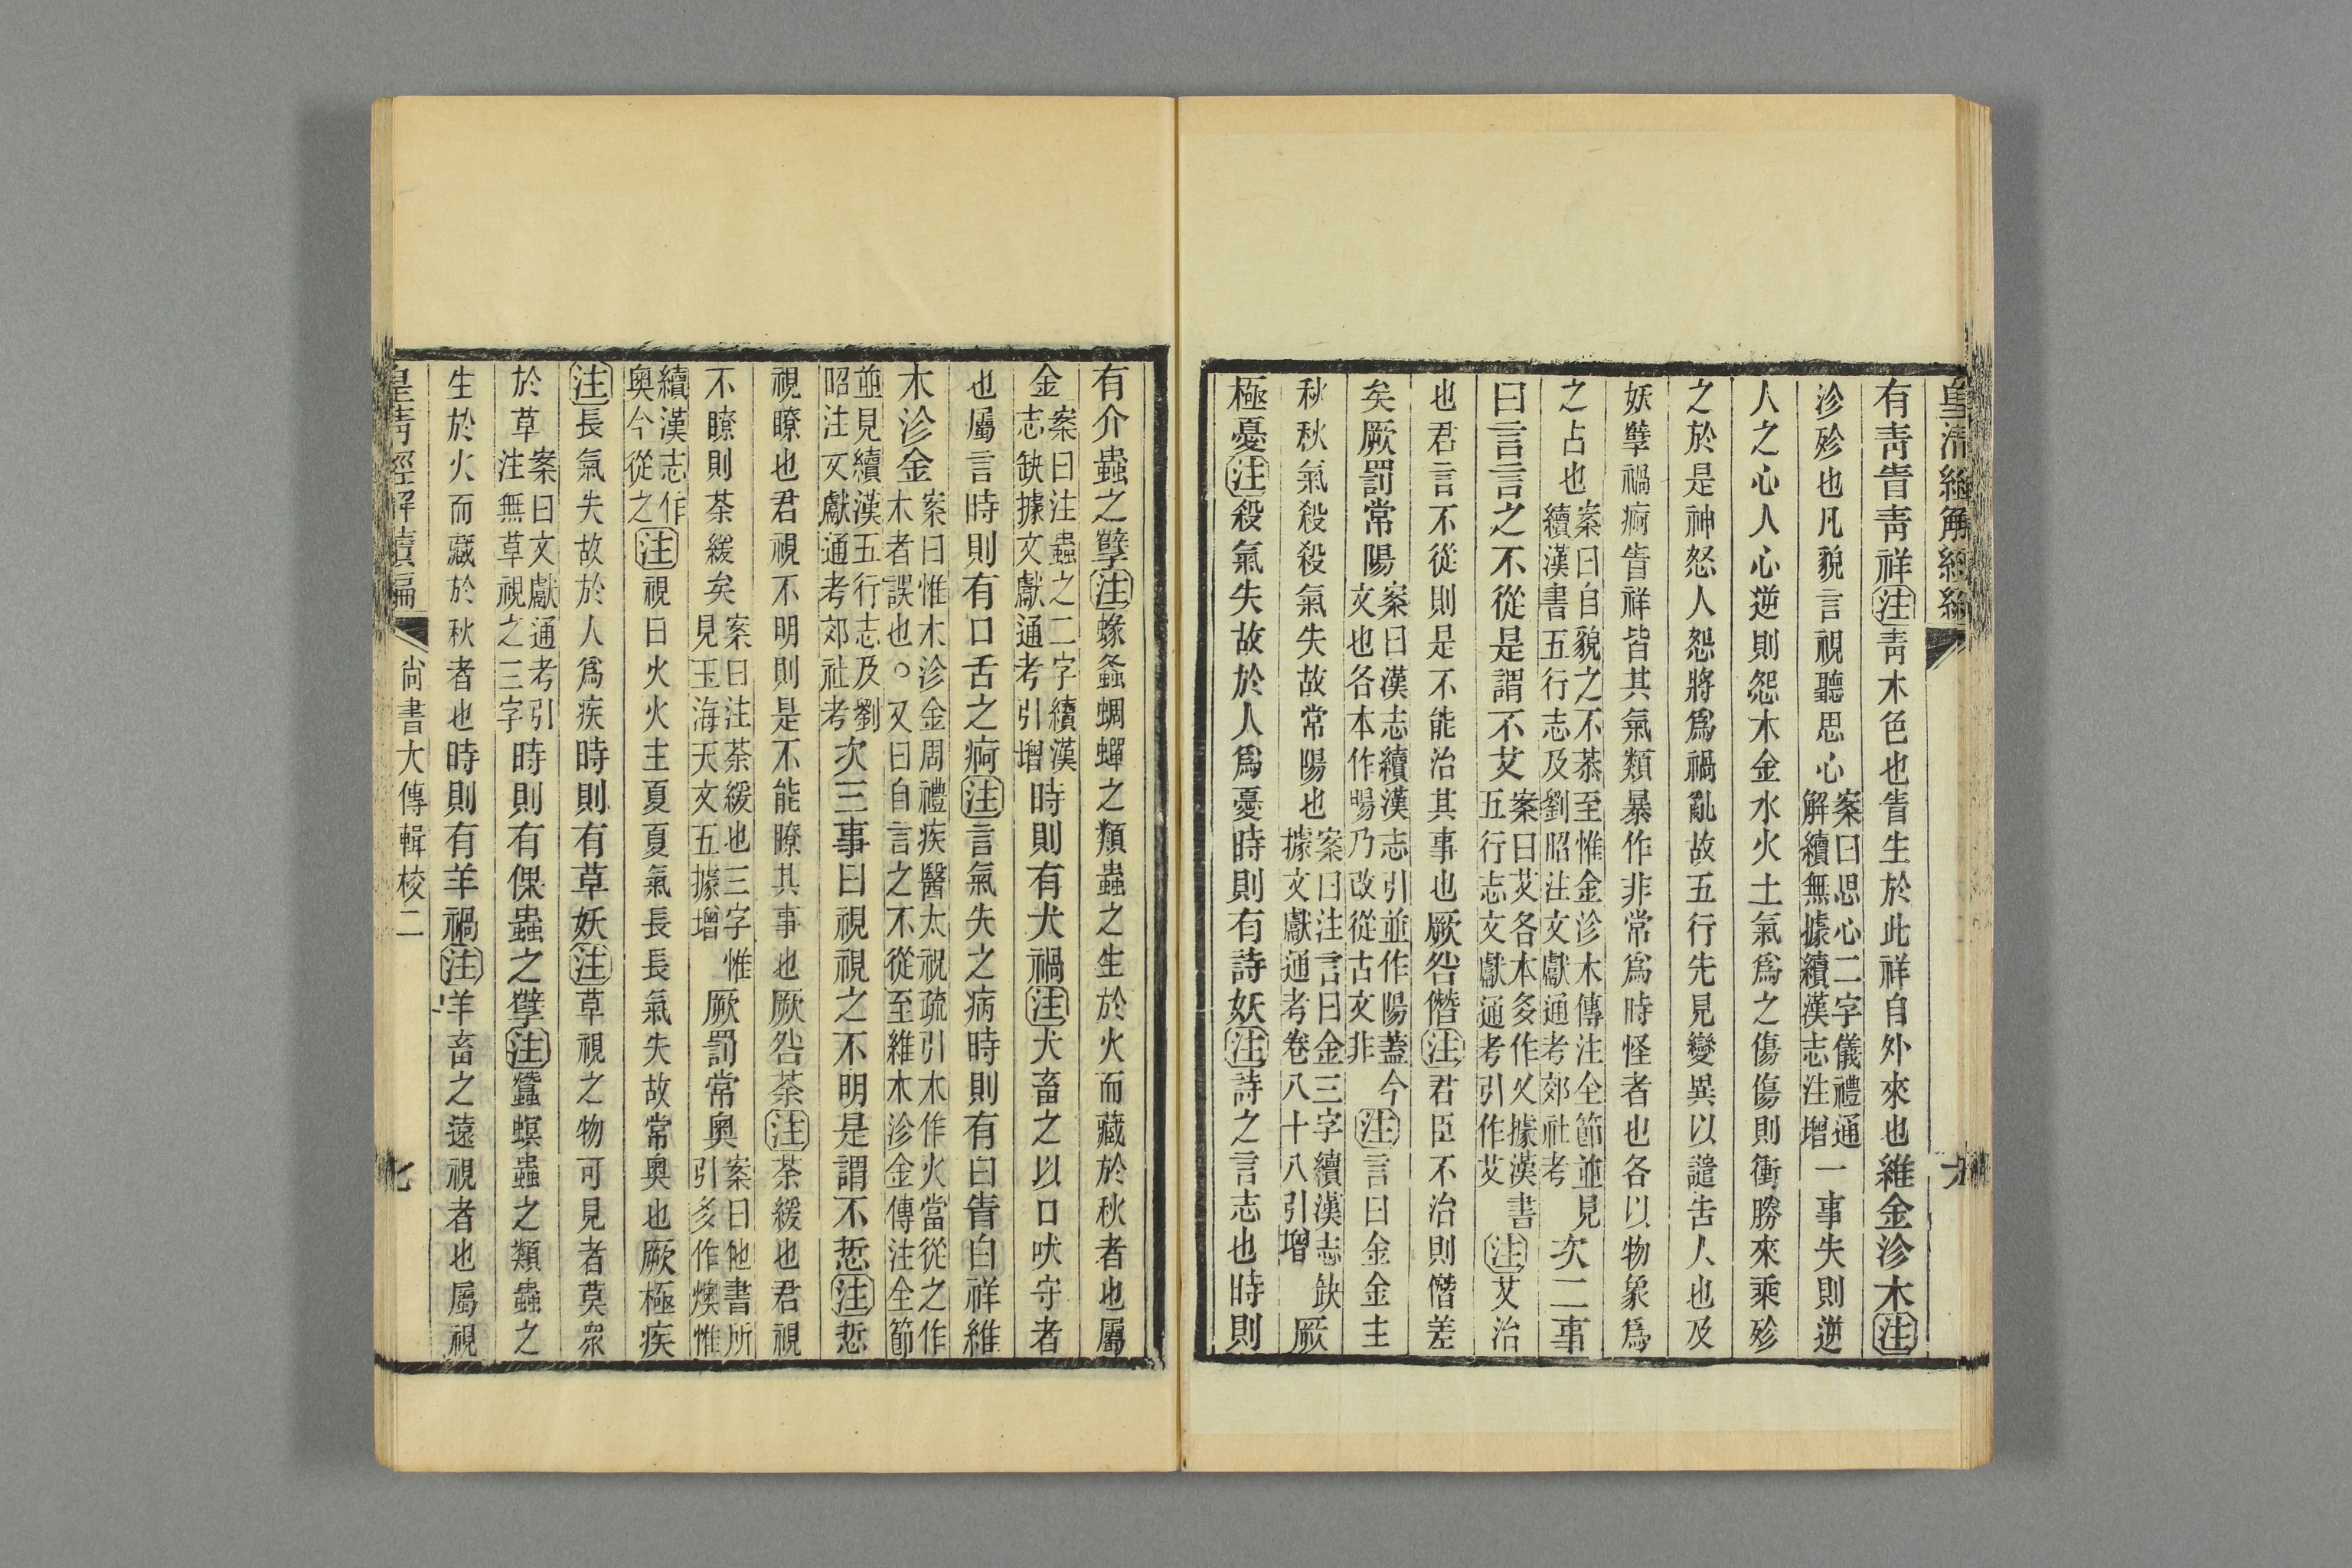 有靑眚靑祥注靑木色也眚生於此祥自外來也維金沴木注
沴殄也凡貌言視聽思心案曰思心二字儀禮通解續無據續漢志注增一事失則逆
人之心人心逆則怨木金水火土氣爲之傷傷則衝勝來乘殄
之於是神怒人怨將爲禍亂故五行先見變異以譴告人也及
妖孽禍痾眚祥皆其氣類暴作非常爲時怪者也各以物象爲
之占也案曰自貌之不恭至惟金沴木傳注全節並見續漢書五行志及劉昭注文獻通考郊社考次二事
曰言言之不從是謂不艾案曰艾各本多作乂據漢書五行志文獻通考引作艾注艾治
也君言不從則是不能治其事也厥咎僭注君臣不治則僭差
矣厥罰常陽案曰漢志續漢志引並作陽蓋今文也各本作暘乃改從古文非注言曰金金主
秋秋氣殺殺氣失故常陽也案曰注言曰金三字續漢志缺據文獻通考卷八十八引增厥
極憂注殺氣失故於人爲憂時則有詩妖注詩之言志也時則
有介蟲之孽注蝝螽蜩蟬之類蟲之生於火而藏於秋者也屬
金案曰注蟲之二字續漢志缺據文獻通考引增時則有犬禍注犬畜之以口吠守者
也屬言時則有口舌之痾注言氣失之病時則有白眚白祥維
木沴金案曰惟木沴金周禮疾醫太祝疏引木作火當從之作木者誤也○又曰自言之不從至維木沴金傳注全節
並見續漢五行志及劉昭注文獻通考郊社考次三事曰視視之不明是謂不悊注悊
視瞭也君視不明則是不能瞭其事也厥咎荼注荼緩也君視
不瞭則荼緩矣案曰注荼緩也三字惟見玉海天文五據增厥罰常奧案曰他書所引多作燠惟
續漢志作奧今從之注視曰火火主夏夏氣長長氣失故常奧也厥極疾
注長氣失故於人爲疾時則有草妖注草視之物可見者莫衆
於草案曰文獻通考引注無草視之三字時則有倮蟲之孽注蠶螟蟲之類蟲之
生於火而藏於秋者也時則有羊禍注羊畜之遠視者也屬視
尙書大傳輯校二